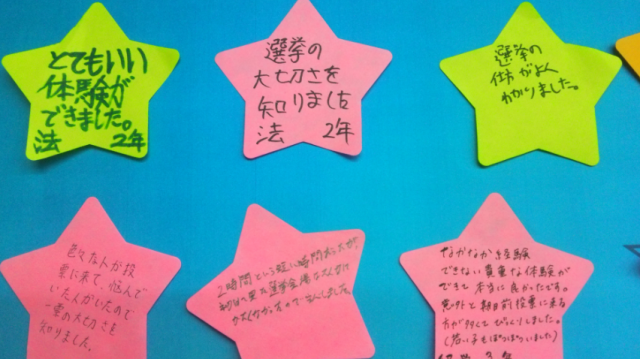 とてもいい
体験が
できました。
法 2年
選挙の
大切さを
知りました
法 2年
選挙の
仕方がよく
わかりました。
色々な人が投
票に来て、悩んで
いた人がいたので
一票の大切さを
知りました。
2時間という短い時間
なかなか経験
できない貴重な体験が
できて本当に良かったです。
意外と期日前投票に来る
方が多くてびっくりしました。
(若い子もぽつぽついました)